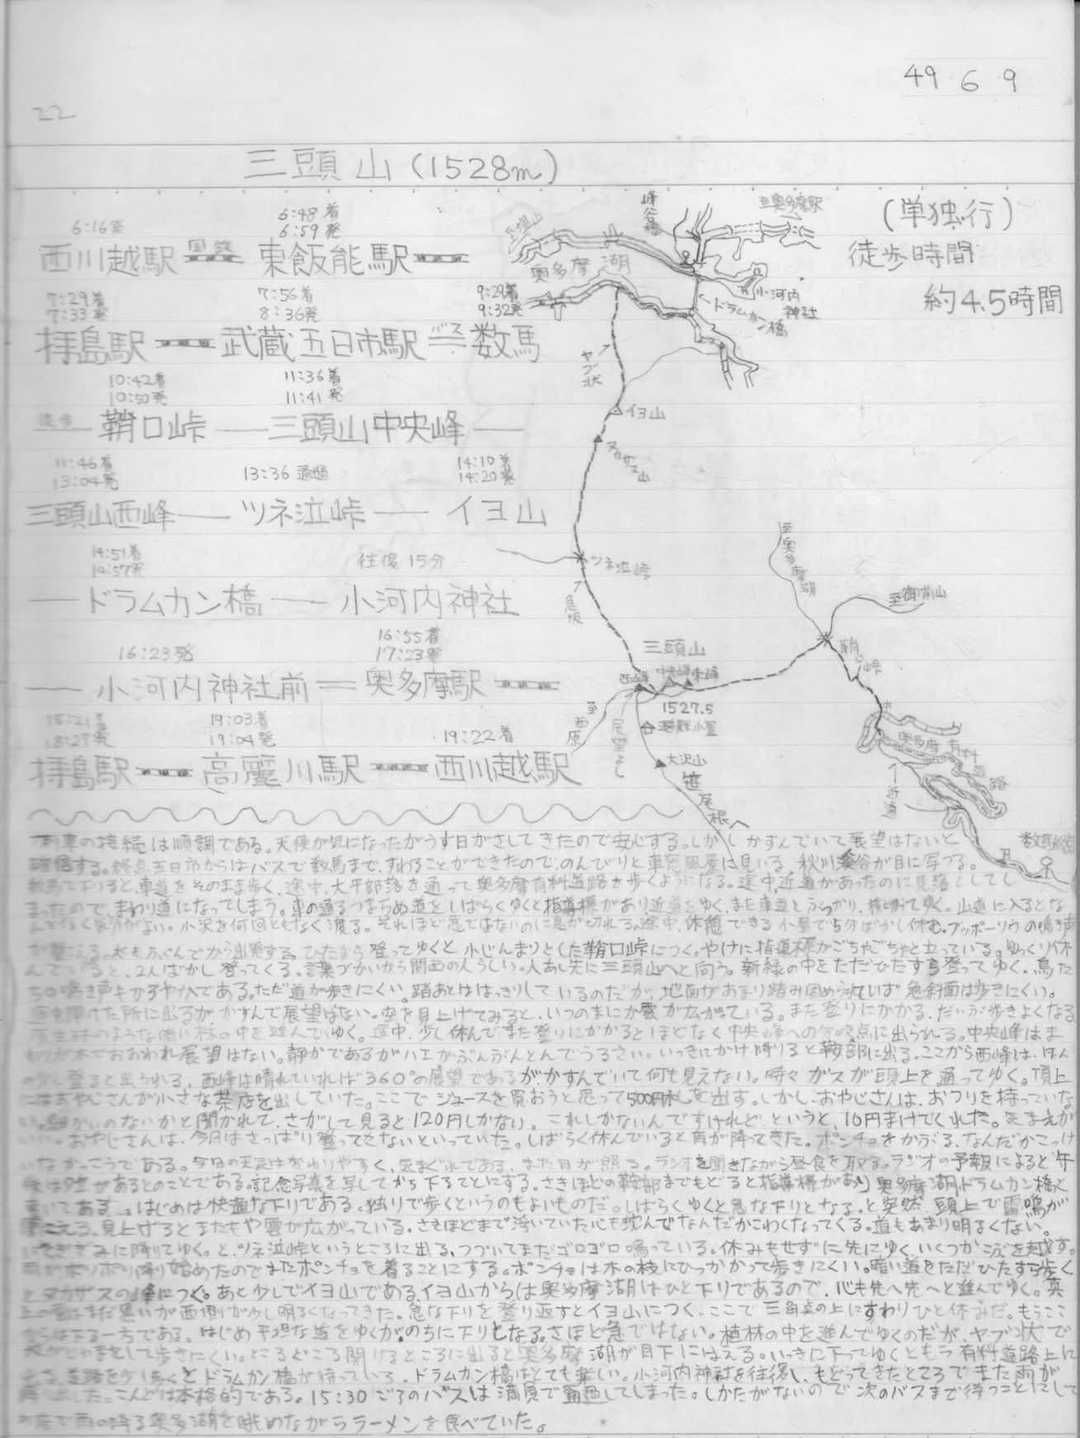 49 6 9
22
三頭山(1528m)
(単独行)
徒歩時間
約4.5時間
6:16発
6:48着
6:59発
西川越駅 国鉄 東飯能駅
7:29着
7:33発
7:56着
8:36発
9:29着
9:32発
拝島駅 武蔵五日市駅 バス 数馬
10:42着
10:50発
11:36着
11:41発
徒歩 鞘口峠 ― 三頭山中央峰 ―
11:46着
13:04発
13:36通過
14:10着
14:20発
三頭山西峰 ― ツネ泣峠 ― イヨ山
14:51着
14:57発
往復15分
― ドラムカン橋 ― 小河内神社
16:23発
16:55着
17:23発
― 小河内神社前 = 奥多摩駅
18:21着
18:27発
19:03着
19:04発
19:22着
拝島駅 高麗川駅 西川越駅
峰谷橋
至奥多摩駅
奥多摩湖
小河内神社
ドラムカン橋
ヤブ状
イヨ山
ヌカザス山
ツネ泣峠
急坂
至奥多摩湖
至御前山
鞘口峠
三頭山
西峰
中央峰
東峰
1527.5
避難小屋
至西原
展望よし
大沢山
笹尾根へ
奥多摩有料道路
近道
列車の接続は順調である。天候が気になったがうす日がさしてきたので安心する。しかしかすんでいて展望はないと
確信する。終点五日市からはバスで数馬まで、すわることができたので、のんびりと車窓風景に見いる。秋川渓谷が目に写る。
数馬で下りると、車道をそのまま歩く、途中、大平部落を通って奥多摩有料道路を歩くようになる。途中近道があったのに見落としてし
まったので、まわり道になってしまう。車の通るつまらぬ道をしばらくゆくと指導標があり近道をゆく、また車道とぶつかり、横切ってゆく。山道に入ると
小沢を何回となく渡る。それほど急ではないのに息が切れる。途中、休憩できる小屋で5分ばかし休む。ブッポーソウの鳴き声
が聞える。水をのんでから出発する。ひたすら登ってゆくと小じんまりとした鞘口峠につく。やけに指導標がごちゃごちゃと立っている。ゆっくり休
んでいると、2人ばかし登ってくる。言葉づかいから関西の人らしい。人あし先に三頭山へと向う。新緑の中をただひたすら登ってゆく、鳥た
ちの鳴き声もかろやかである。ただ道が歩きにくい。踏あとははっきりしているのだが、地面があまり踏み固められていず急斜面は歩きにくい。
途中開けた所に出るがかすんで展望はない。空を見上げてみると、いつのまにか雲が広がっている。また登りにかかる。だいぶ歩きよくなる
の中を進んでゆく。途中、少し休んでまた登りにかかるとほどなく中央峰への分岐点に出られる。中央峰はま
わりが木でおおわれ展望はない。静かであるがハエがぶんぶんとんでうるさい。いっきにかけ降りると鞍部に出る。ここから西峰は、ほん
の少し登ると出られる。西峰は晴れていれば360°の展望であるが、かすんでいて何も見えない。時々ガスが頭上を通ってゆく。頂上
にはおやじさんが小さな茶店を出していた。ここでジュースを買おうと思って500円札を出す。しかしおやじさんは、おつりを持っていな
い。細かいのないかと聞かれて、さがして見ると120円しかない。これしかないんですけれどというと、10円まけてくれた。気まえが
いい。おやじさんは、今日はさっぱり登ってきないといっていた。しばらく休んでいると雨が降ってきた。ポンチョをかぶる、なんだかこっけ
いなかっこうである。今日の天気はかわりやすく、気まぐれである。また日が照る。ラジオを聞きながら昼食を取る。ラジオの予報によると午
後は雷があるとのことである。記念写真を写してから下ることにする。さきほどの鞍部までもどると指導標があり奥多摩湖ドラムカン橋と
書いてある。はじめは快適な下りである。独りで歩くというのもよいものだ。しばらくゆくと急な下りとなる。と突然、頭上で雷鳴が
聞こえる。見上げるとまたもや雲が広がっている。さきほどまで浮いていた心も沈んでなんだかこわくなってくる。道もあまり明るくない。
いそぎぎみに降りてゆく。と、ツネ泣峠というところに出る、つづいてまだゴロゴロ鳴っている。休みもせずに先にゆく、いくつかこぶを越す。
雨がポツポツ降り始めたのでまたポンチョを着ることにする。ポンチョは木の枝にひっかかって歩きにくい。暗い道をただひたすら歩く
とヌカザスの峰につく。あと少しでイヨ山である。イヨ山からは奥多摩湖はひと下りであるので、心も先へ先へと進んでゆく。真
上の雲はまだ黒いが西側が少し明るくなってきた。急な下りを登り返すとイヨ山につく、ここで三角点の上にすわりひと休みだ。もうここ
からは下る一方である。はじめ平坦な道をゆくが、のちに下りとなる。さほど急ではない。植林の中を進んでゆくのだが、ヤブ状で
木がじゃまをして歩きにくい。ところどころ開けるところに出ると奥多摩湖が目下にはえる。いっきに下ってゆくともう有料道路上に
出る。道路を少し歩くとドラムカン橋が待っている。ドラムカン橋はとても楽しい。小河内神社を往復し、もどってきたところでまた雨が
降りだした。こんどは本格的である。15:30ごろのバスは満員で通過してしまった。しかたがないので次のバスまで待つことにして
店で雨の降る奥多摩湖を眺めながらラーメンを食べていた。